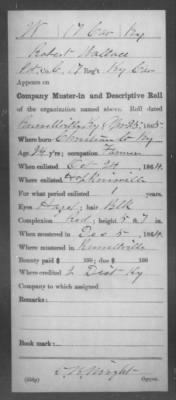 W 17 Cav Ky
Robert Wallace
Pvt., Co. , 17 Reg't Ky Cav
Appears on
Company Muster-in and Descriptive Roll
of the organization named above. Roll dated
Russellville Ky, 1865.
Where born Christian Co Ky
Age y'rs; occupation Farmer
When enlisted Oct 24, 1864.
Where enlisted Hopkinsville
For what period enlisted 1
Eyes Hazel; hair Blk
Complexion Red; height 5 ft. 7 in.
When mustered in Dec 5, 1864.
Where mustered in Russellville
Bounty paid $ 100; due $ 100
Where credited 2 Dist Ky
Company to which assigned
Remarks:
Book mark:
Wright
Copyist.